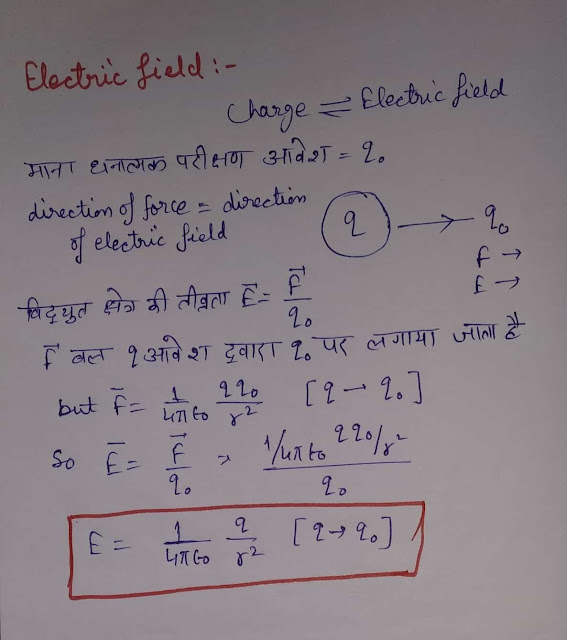 Electric field :-
Charge ⇌ Electric field
माना धनात्मक परीक्षण आवेश = q₀
direction of force = direction
of electric field
q → q₀
F →
E →
विद्युत क्षेत्र की तीव्रता E⃗ = F⃗/q₀
F⃗ बल q आवेश द्वारा q₀ पर लगाया जाता है
but F⃗ = 1/4πϵ₀ qq₀/r² [q → q₀]
So E⃗ = F⃗/q₀ ⇒ (1/4πϵ₀ qq₀/r²)/q₀
E = 1/4πϵ₀ q/r² [q → q₀]